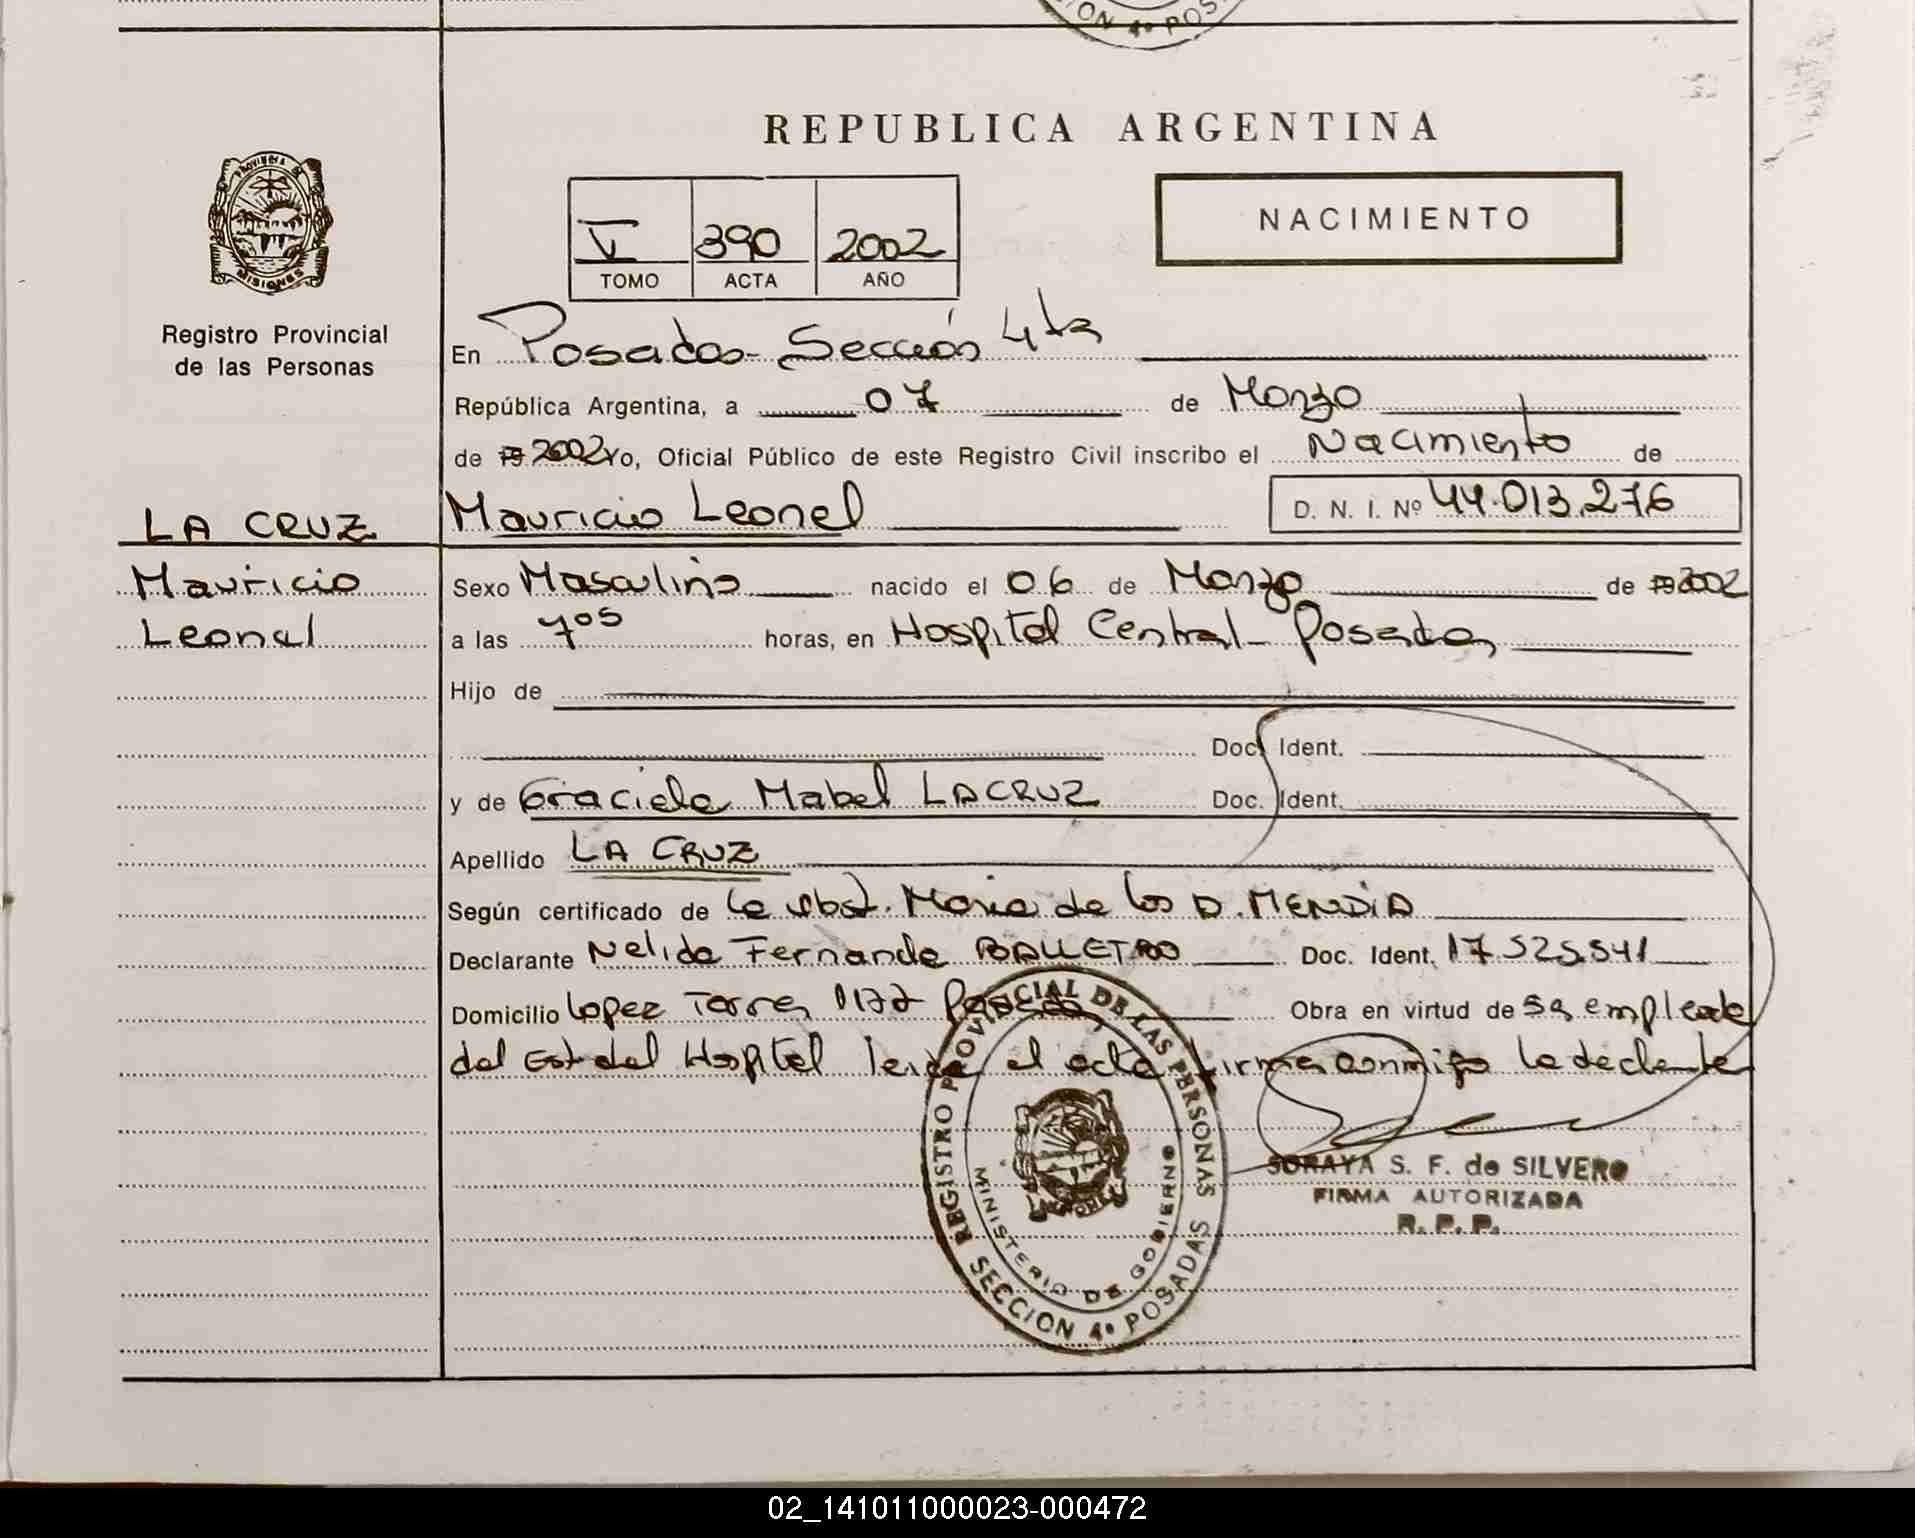 CION 4º POS
REPUBLICA ARGENTINA
PROVINCIA DE
MISIONES
Registro Provincial
de las Personas
V 390 2002
TOMO ACTA AÑO
NACIMIENTO
En Posadas - Sección 4ta
República Argentina, a 07 de Marzo
de 19 2002 Yo, Oficial Público de este Registro Civil inscribo el Nacimiento de
LA CRUZ Mauricio Leonel D. N. I. Nº 44.013.276
Mauricio Sexo Masculino nacido el 06 de Marzo de 19 2002
Leonel a las 7 05 horas, en Hospital Central - Posadas
Hijo de
Doc. Ident.
y de Graciela Mabel LACRUZ Doc. Ident.
Apellido LA CRUZ
Según certificado de la obst. Maria de los D. MENDIA
Declarante Nelida Fernanda Doc. Ident. 17.525.541
Domicilio Lopez Torres Posadas Obra en virtud de ser empleada
del Est. del Hospital leida el acta firma conmigo la declarante
SORAYA S. F. de SILVERO
FIRMA AUTORIZADA
R. P. P.
REGISTRO PROVINCIAL DE LAS PERSONAS
MINISTERIO DE GOBIERNO
SECCION 4º POSADAS
02_141011000023-000472